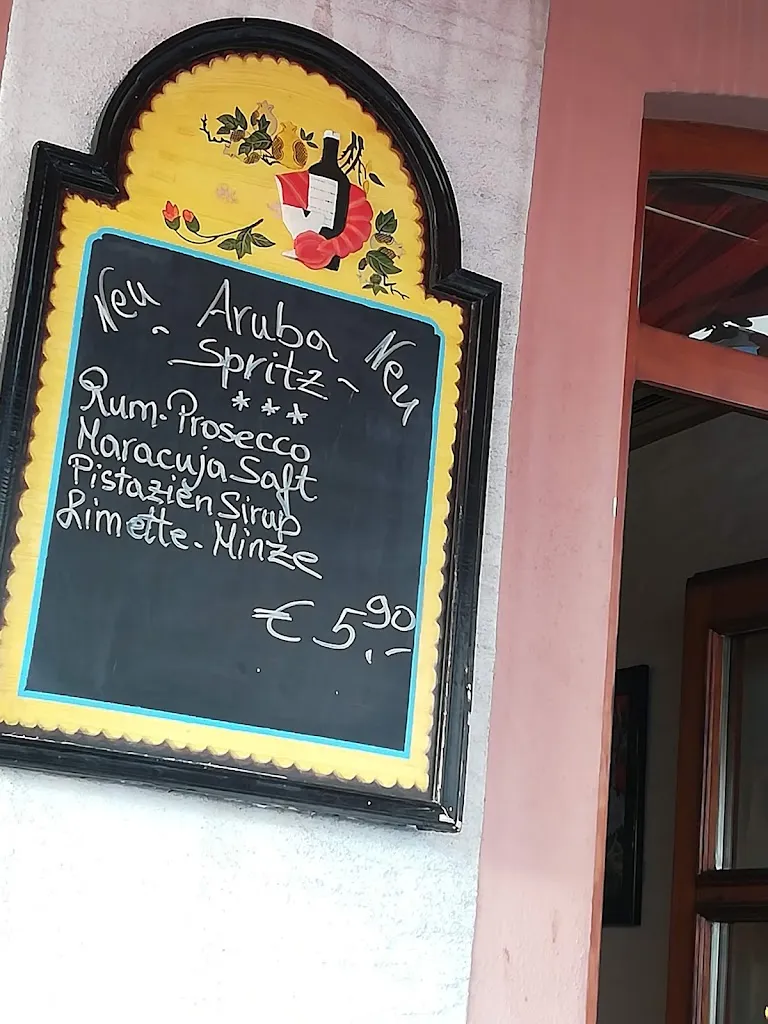 Neu
- Aruba
Spritz -
Neu
***
Rum-Prosecco
Maracuja Saft
Pistazien Sirup
Limette-Minze
€ 5,90